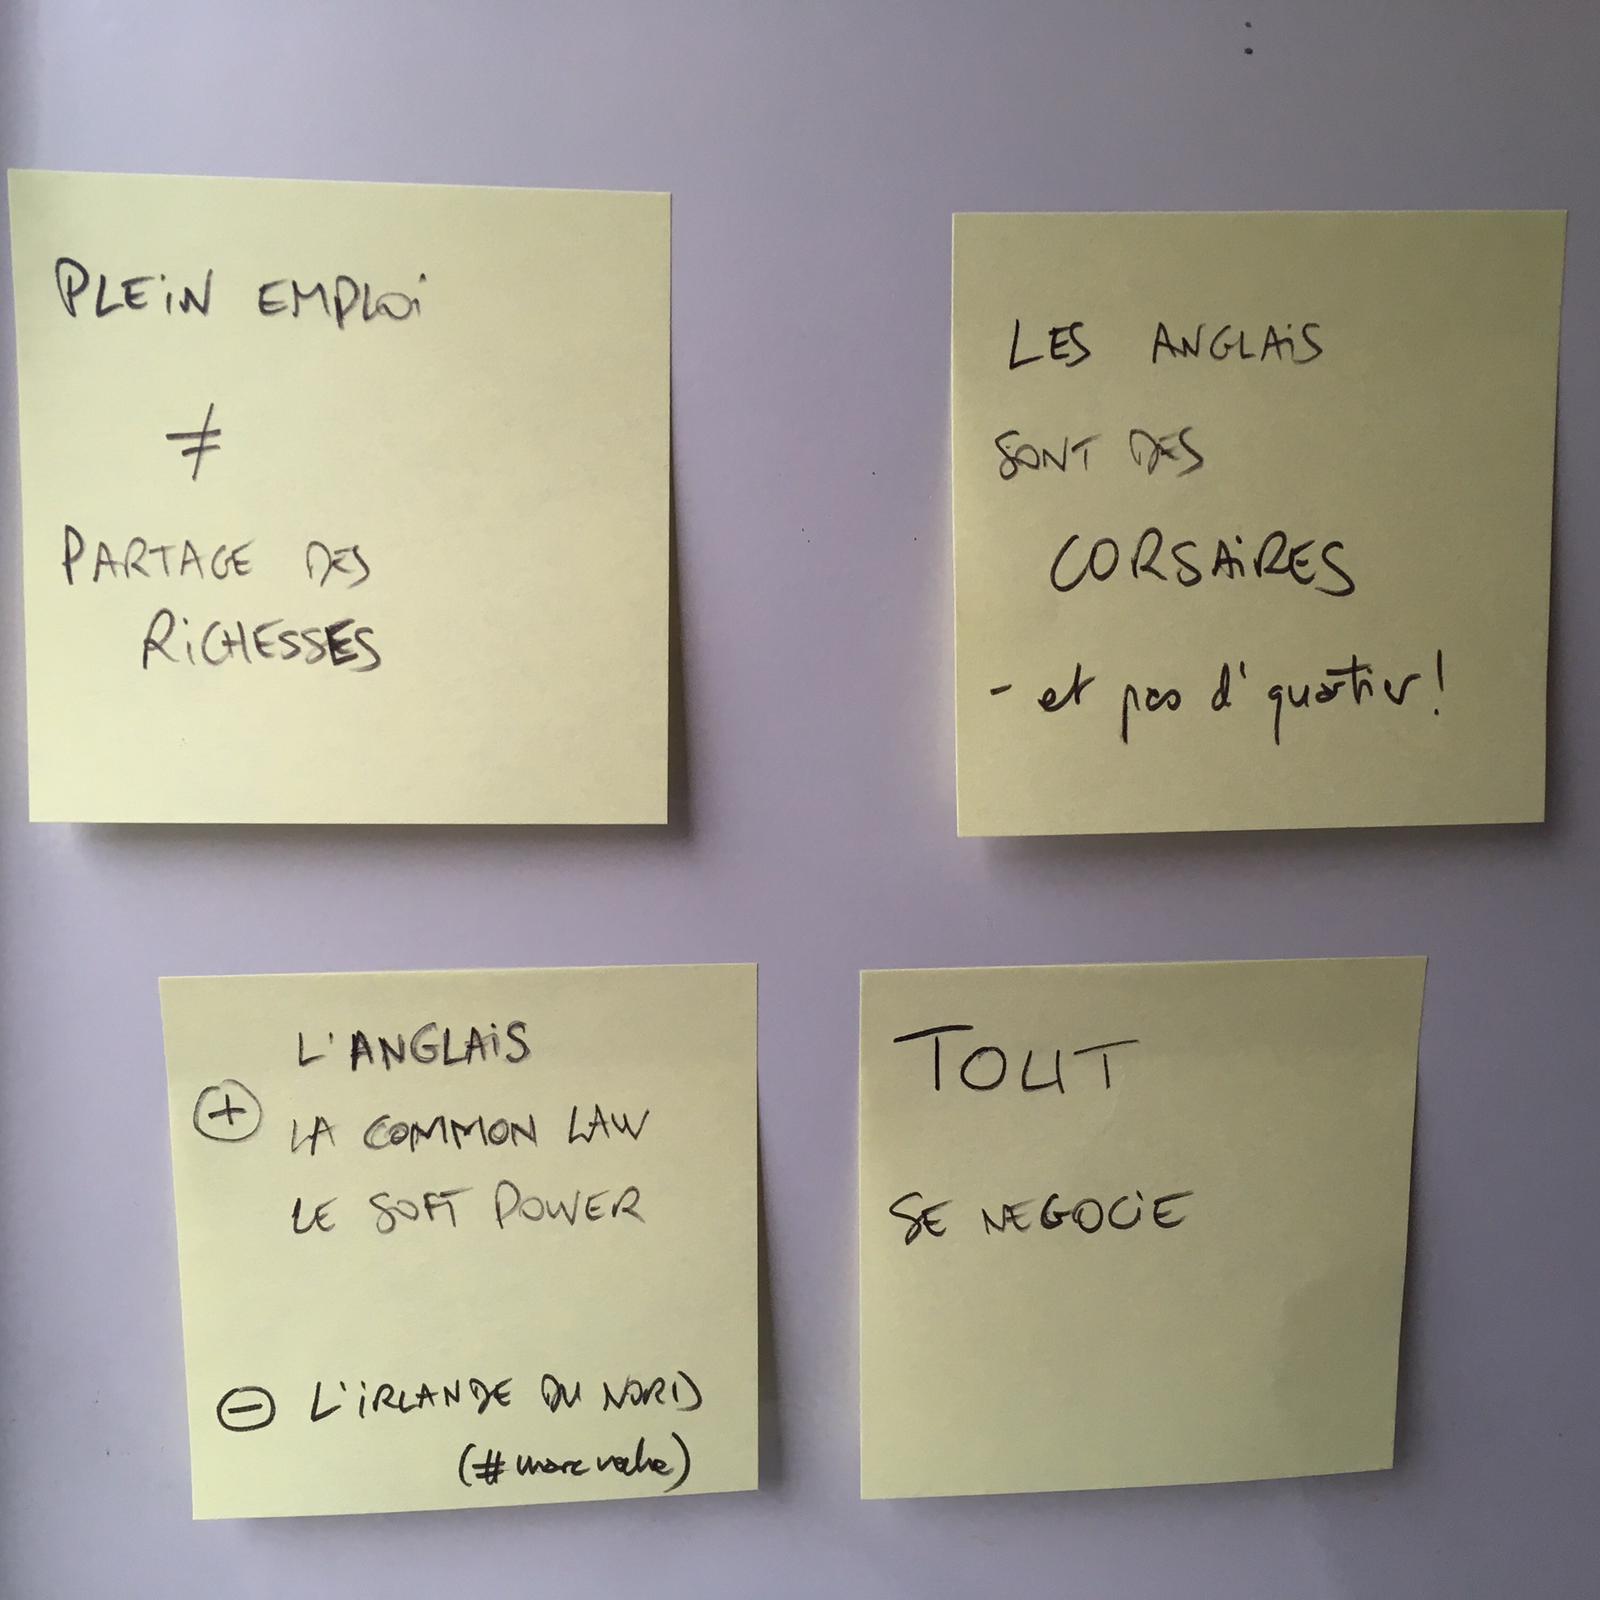 PLEIN EMPLOI
≠
PARTAGE DES
RICHESSES
LES ANGLAIS
SONT DES
CORSAIRES
- et pas d' quartier !
L'ANGLAIS
+ LA COMMON LAW
LE SOFT POWER
- L'IRLANDE DU NORD
(# marc roche)
TOUT
SE NEGOCIE